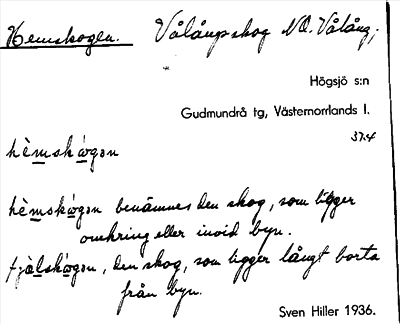 Hemskogen. Vålångskog NO. Vålång;
Högsjö s:n
Gudmundrå tg, Västernorrlands l.
37.4
hèmskógən
hèmskógən benämnes den skog, som ligger
omkring eller invid byn.
fjàlskógən, den skog, som ligger långt borta
från byn.
Sven Hiller 1936.